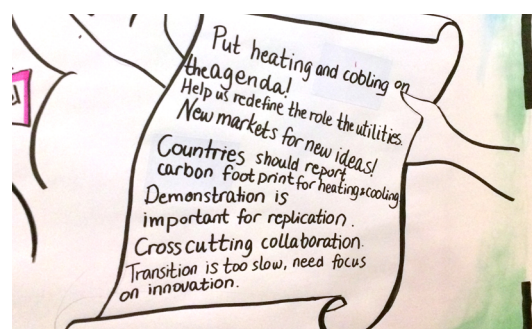 Put heating and cobling on
the agenda!
Help us redefine the role the utilities.
New markets for new ideas!
Countries should report
carbon foot print for heating & cooling
Demonstration is
important for replication.
Cross cutting collaboration.
Transition is too slow, need focus
on innovation.